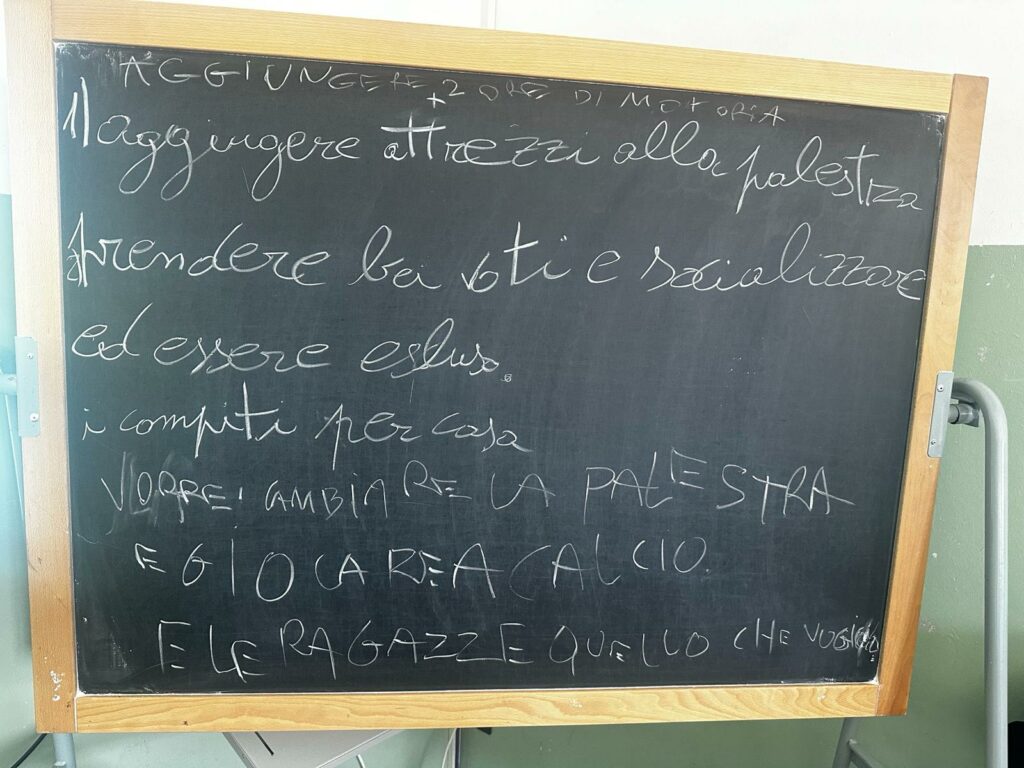 AGGIUNGERE +2 ORE DI MOTORIA
1) aggiugere attrezzi alla palestra
prendere bei voti e socializzare
ed essere esluso.
i compiti per casa
VORREI CAMBIARE LA PALESTRA
E GIOCARE A CALCIO.
E LE RAGAZZE QUELLO CHE